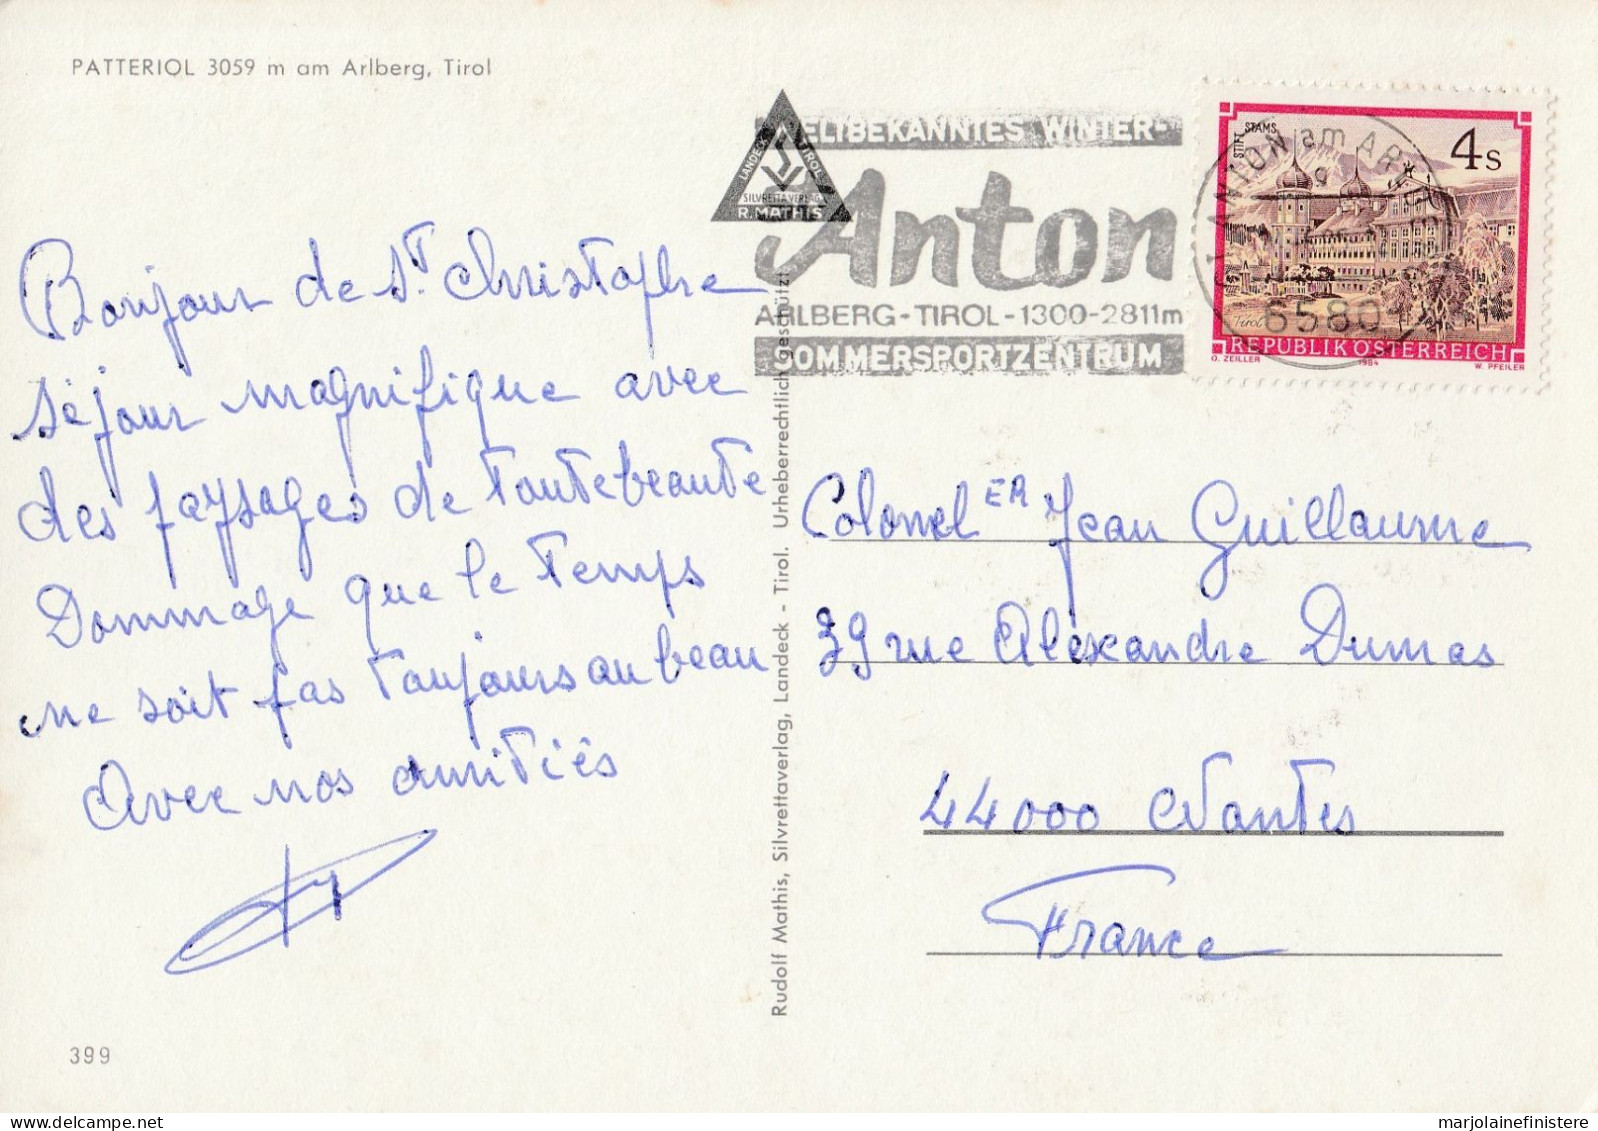 PATTERIOL 3059 m am Arlberg, Tirol
Bonjour de St Christophe
séjour magnifique avec
des paysages de toute beauté
Dommage que le temps
ne soit pas toujours au beau
Avec nos amitiés
399
LANDECK TIROL
SILVRETTAVERLAG
R. MATHIS
ELTBEKANNTES WINTER-
Anton
ARLBERG-TIROL-1300-2811m
OMMERSPORTZENTRUM
ANTON am ARLBERG
6580
STIFT STAMS
4s
Tirol
REPUBLIK ÖSTERREICH
O. ZEILLER 1984 W. PFEILER
Rudolf Mathis, Silvrettaverlag, Landeck - Tirol. Urheberrechtlich geschützt!
Colonel ER Jean Guillaume
39 rue Alexandre Dumas
44000 Nantes
France
marjolainefinistere